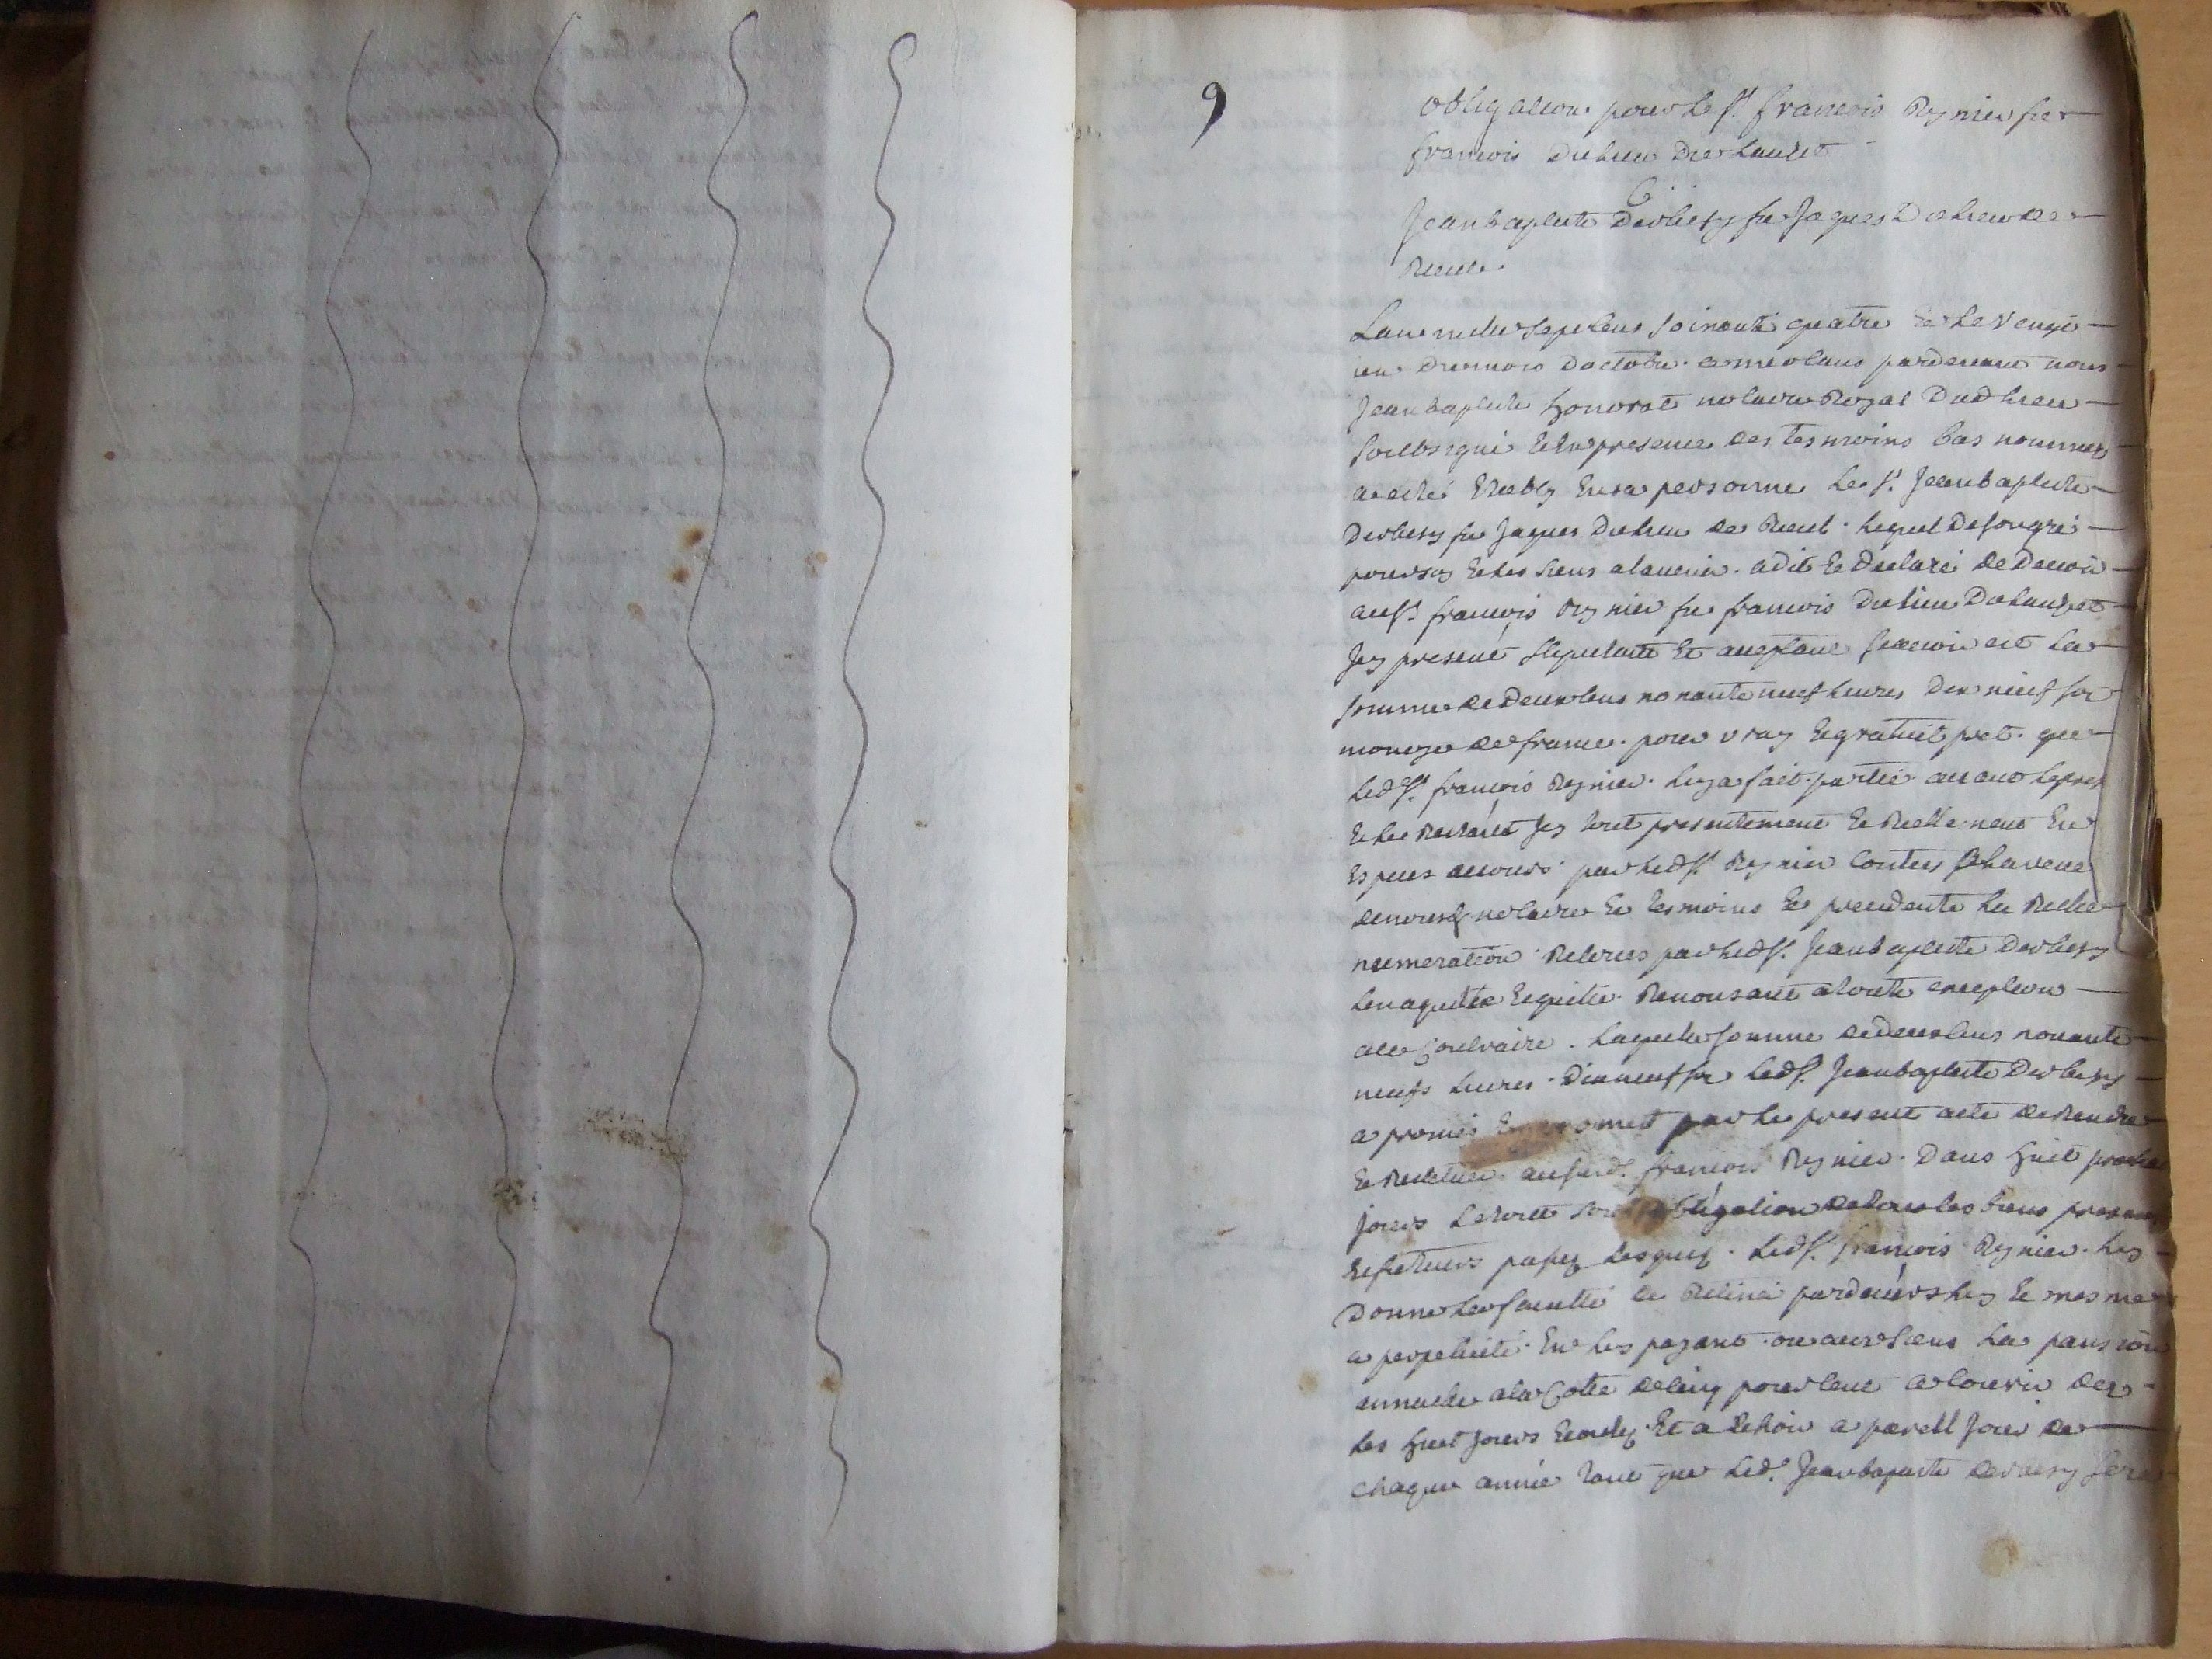 9
obligation pour le sr. francois Reynier feu
francois du lieu de Lauzet
C.
Jean baptiste Derbesy feu Jaques du lieu de
Revel
Lan mille sept cens soixante quatre et le vengt
un du mois doctobre . constitans pardevant nous
Jean baptiste honorat notaire Royal dud lieu
soubsigné et en presence des tesmoins bas nommés
a esté establi en sa personne le sr. Jean baptiste
Derbesy feu Jaques du lieu de Revel . lequel de son gré
pour soy et les siens a lavenir . a dit et declaré de devoir
au sr. francois Reynier feu francois du lieu de Lauzet
Jcy present stipulant et aceptant scavoir est la
somme de deux cens nonante neuf livres dix neuf sol
monoye de france . pour vray et gratuit pret . que
led sr. francois Reynier . luy a fait partie avant les pres
et le restant Jcy tout presentement et reellement en
especes de cours par led sr. Reynier contées et a la veue
de nousd notaire et tesmoins et precedante la reelle
numeration retirées par led sr. Jean baptiste Derbesy
len aquitte et quitte . Renonsant a toute exception
a ce contraire . Laquelle somme de deux cens nonante
neuf livres . dix neuf sol led sr. Jean baptiste Derbesy
a promis et promet par le present acte de rendre
et restituer au susd. francois Reynier . dans huit prochains
jours le tout sous obligation de tous les biens presens
et futeurs passez lesquels . led sr. francois Reynier . luy
donne la faculté de retenir pardevers luy et mesme
a perpetuité . en luy payant . ou aux siens la pansion
annuelle a la cotte de cinq pour cent a courir des
les huit jours escoulez . et a eschoir a pareil jour de
chaque année tant que led. Jean baptiste Derbesy sera